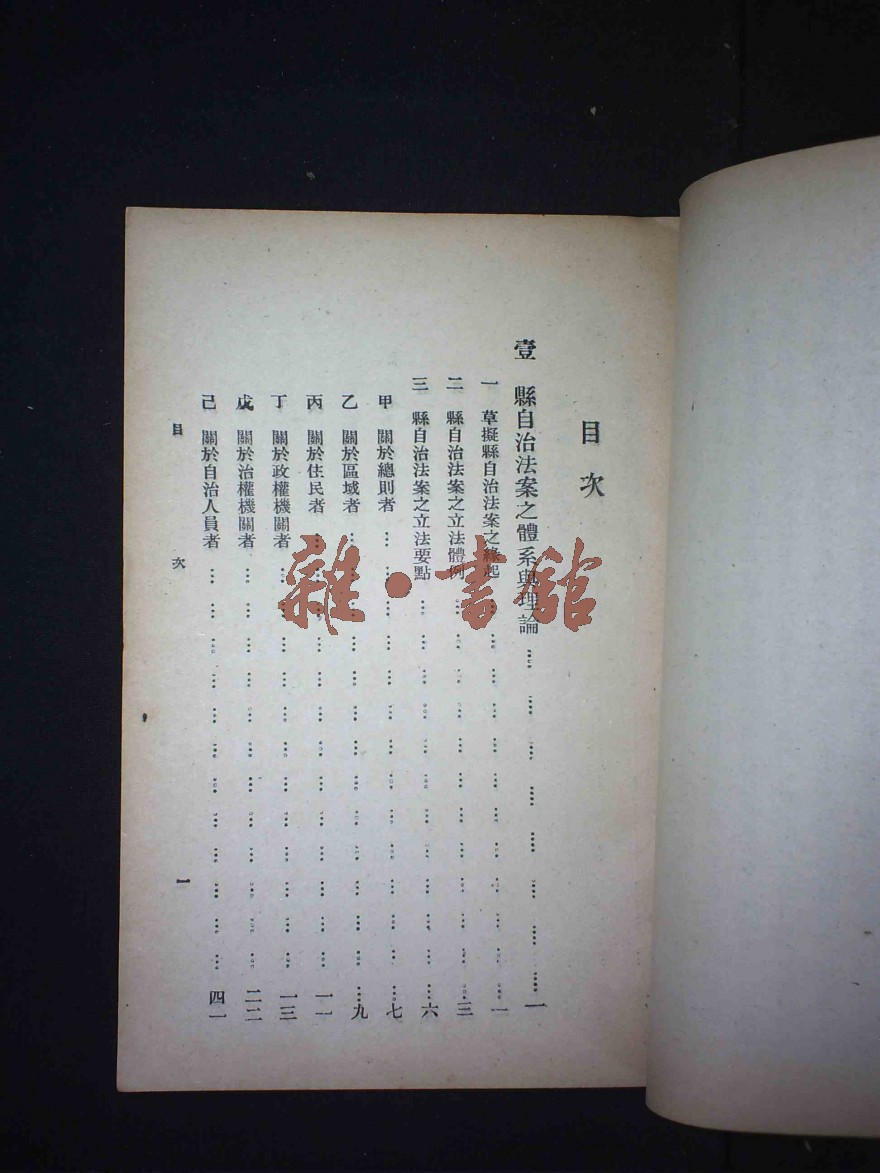 目次
壹 縣自治法案之體系與理論……一
一 草擬縣自治法案之緣起……一
二 縣自治法案之立法體例……三
三 縣自治法案之立法要點……六
甲 關於總則者……七
乙 關於區域者……九
丙 關於住民者……一一
丁 關於政權機關者……一三
戊 關於治權機關者……二二
己 關於自治人員者……四一
目 次 一
雜·書館